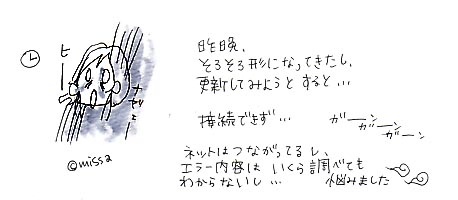 ヒ
ー
昨晩、
そろそろ形になってきたし、
更新してみようとすると…
接続できず… ガーン ガーン ガーン
ネットはつながってるし、
エラー内容はいくら調べても
わからないし… 悩みました
©missa